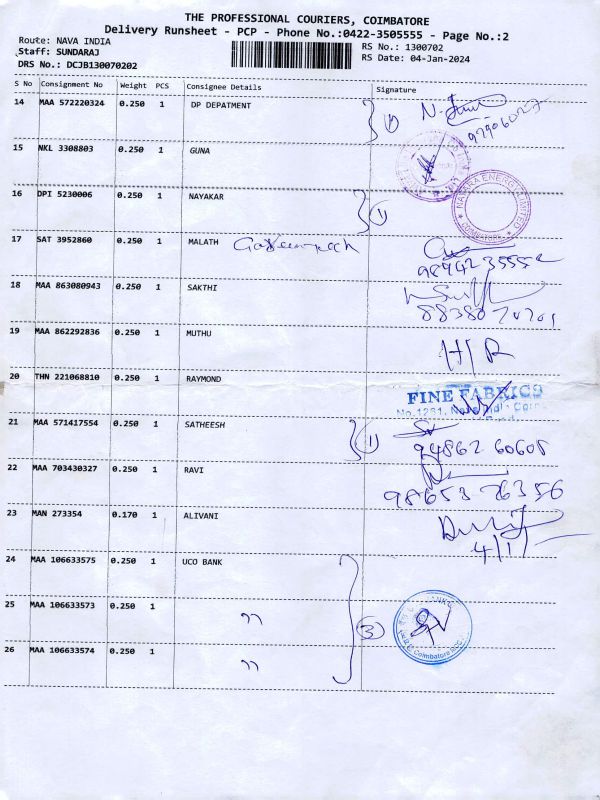 THE PROFESSIONAL COURIERS, COIMBATORE
Delivery Runsheet - PCP - Phone No.:0422-3505555 - Page No.:2
Route: NAVA INDIA
RS No.: 1300702
Staff: SUNDARAJ
RS Date: 04-Jan-2024
DRS No.: DCJB130070202
S No Consignment No Weight PCS Consignee Details Signature
14 MAA 572220324 0.250 1 DP DEPATMENT 1
15 NKL 3308803 0.250 1 GUNA
16 DPI 5230006 0.250 1 NAYAKAR 1
ENERGY LIMITED
COIMBATORE
17 SAT 3952860 0.250 1 MALATH
9894235552
18 MAA 863080943 0.250 1 SAKTHI
19 MAA 862292836 0.250 1 MUTHU H/R
20 THN 221068810 0.250 1 RAYMOND
FINE FABRICS
No.1281, Nava India
21 MAA 571417554 0.250 1 SATHEESH 1
94862 60608
22 MAA 703430327 0.250 1 RAVI
98653 76356
23 MAN 273354 0.170 1 ALIVANI
4/1/
24 MAA 106633575 0.250 1 UCO BANK
25 MAA 106633573 0.250 1 " 3
26 MAA 106633574 0.250 1 "
Coimbatore